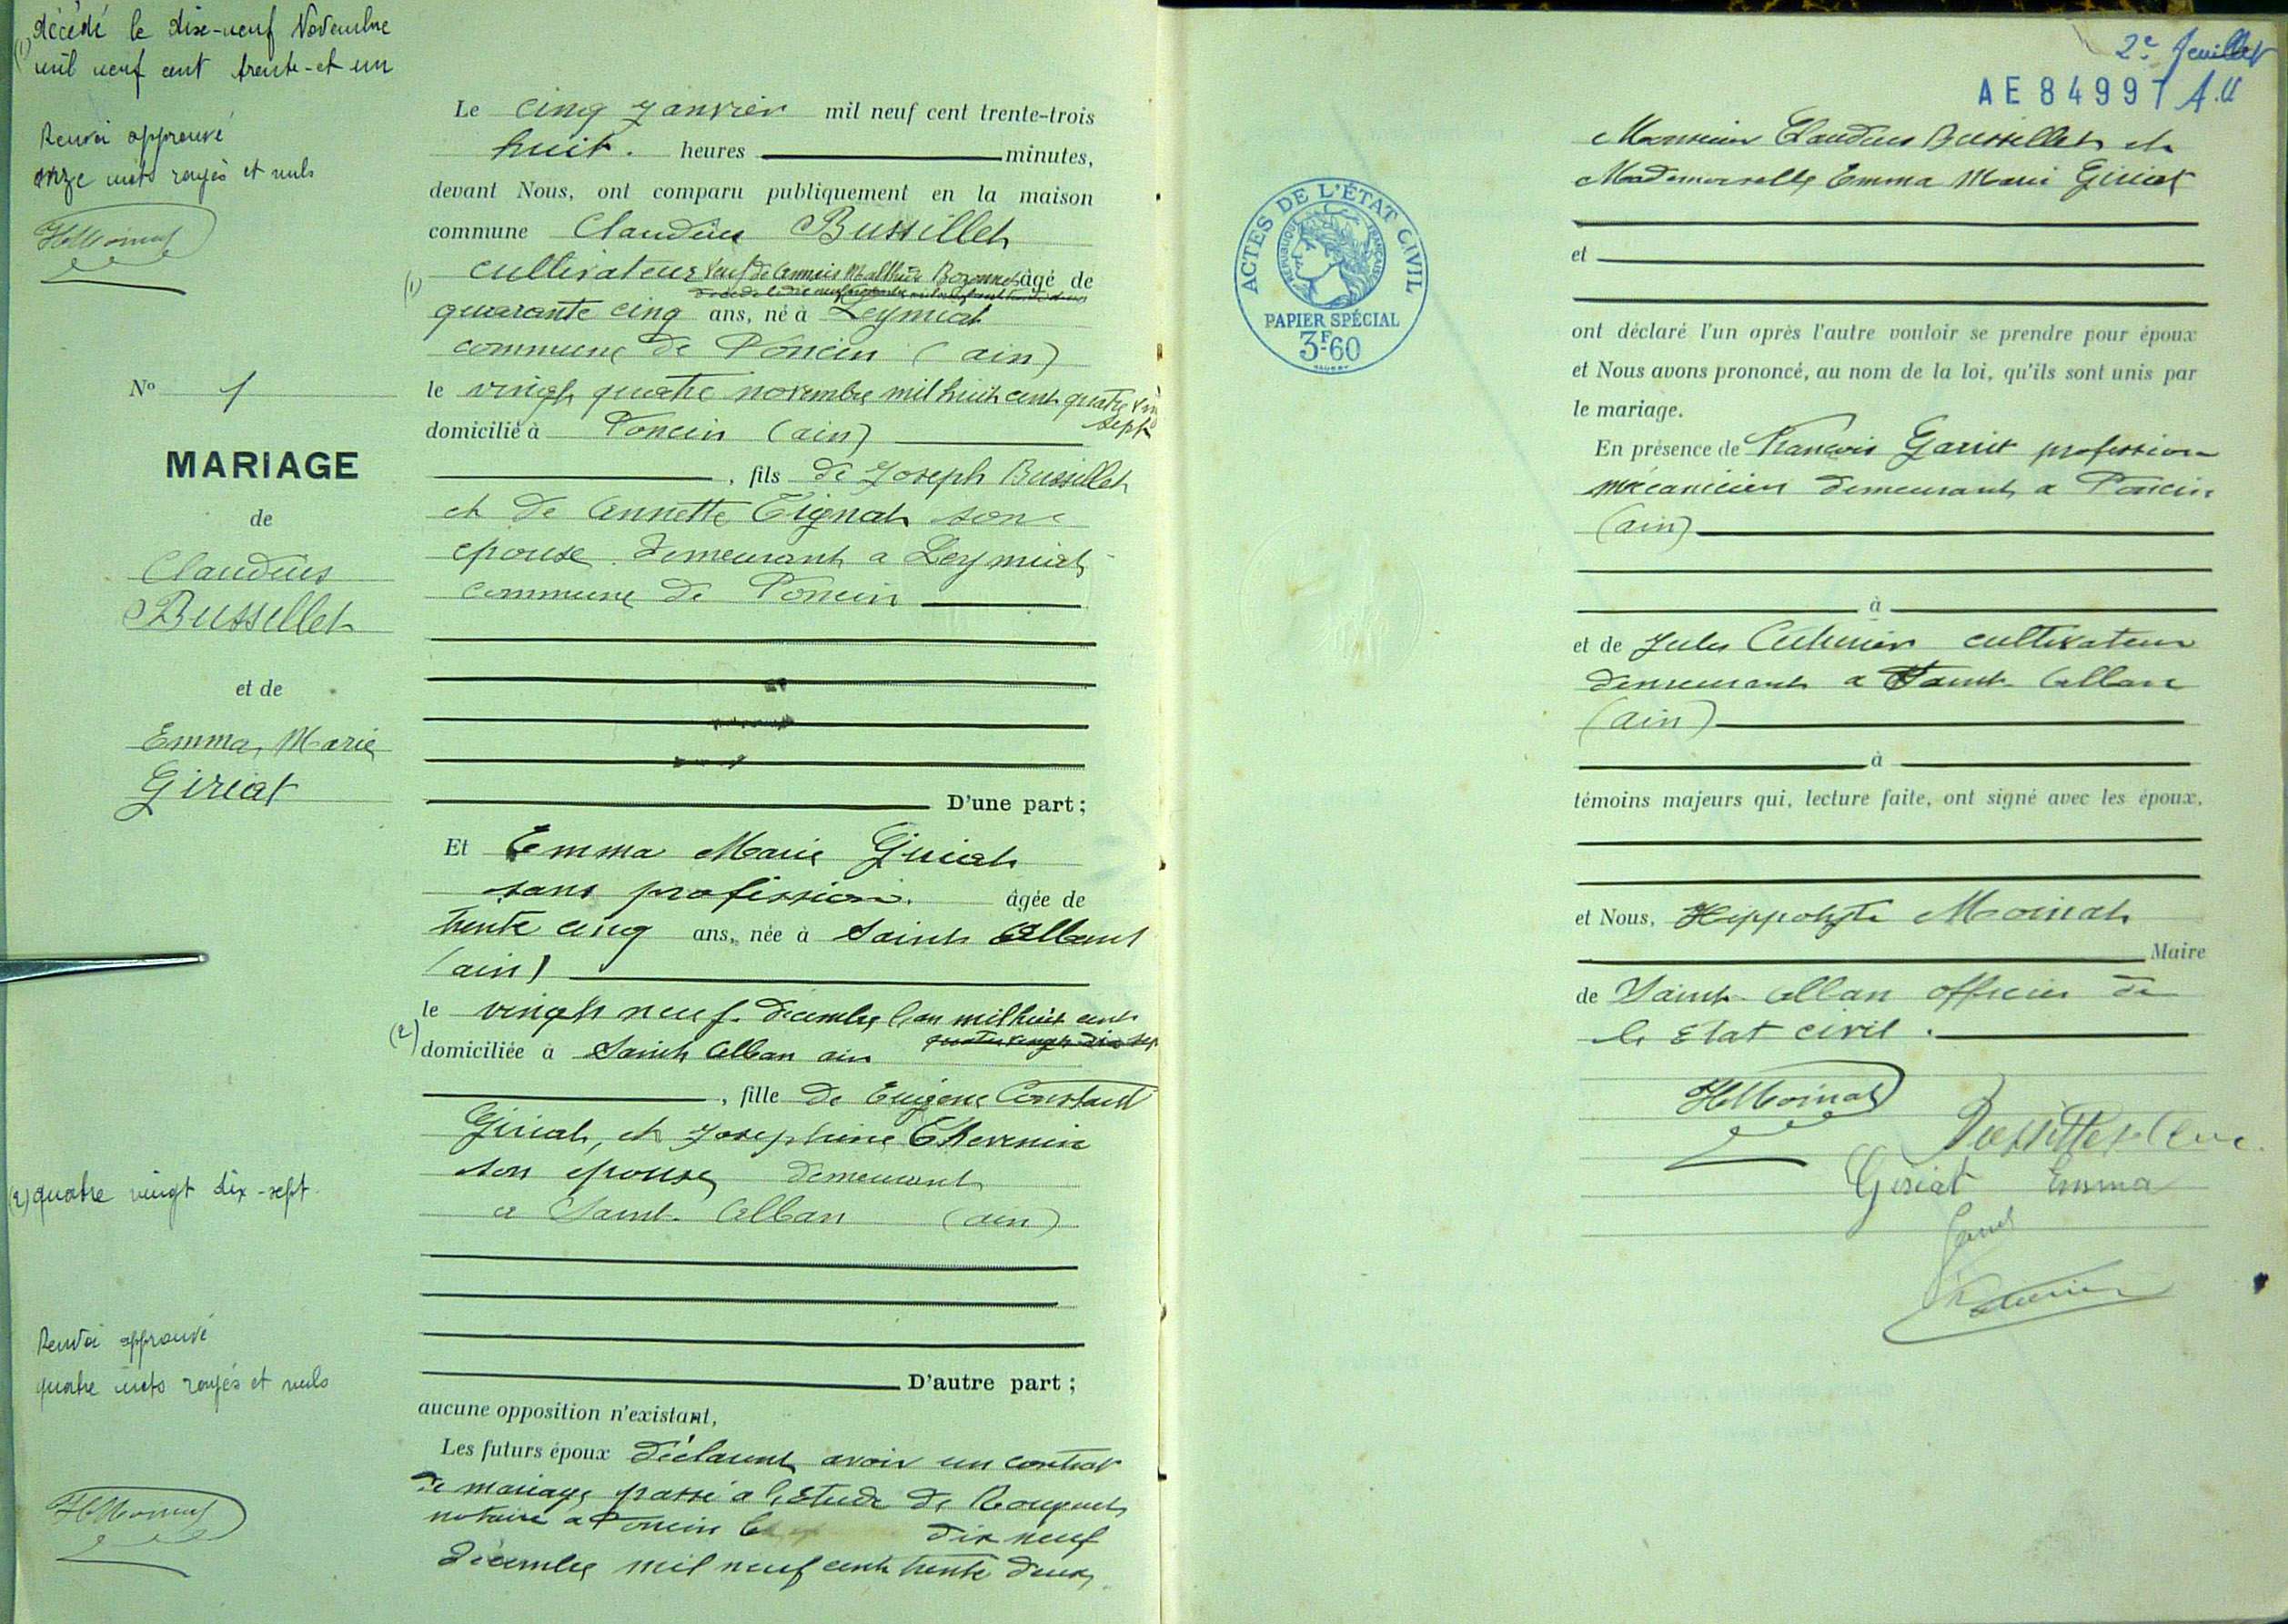 décédé le dix-neuf Novembre
(1) mil neuf cent trente-et-un
Renvoi approuvé
onze mots rayés et nuls
HMoinat
Nº 1
MARIAGE
de
Claudius
Bussillet
et de
Emma, Marie
Giriat
(2) quatre vingt dix-sept
Renvoi approuvé
quatre mots rayés et nuls
HMoinat
Le cinq Janvier mil neuf cent trente-trois
huit heures minutes,
devant Nous, ont comparu publiquement en la maison
commune Claudius Bussillet
cultivateur veuf de Mathilde âgé de
(1)
quarante cinq ans, né à Leymiat
commune de Poncin (ain)
le vingt quatre novembre mil huit cent quatre vin
sept
domicilié à Poncin (ain)
, fils de Joseph Bussillet
et de Annette Tignat son
epouse demeurant a Leymiat
commune de Poncin
D'une part;
Et Emma Marie Giriat
sans profession. âgée de
trente cinq ans, née à Saint Alban
(ain)
le vingt neuf decembre l'an mil huit cent
quatre vingt dix sep
(2) domiciliée à Saint Alban ain
, fille de Eugène Constant
Giriat, et Josephine Thevenin
son epouse demeurant
a Saint Alban (ain)
D'autre part;
aucune opposition n'existant,
Les futurs époux déclarent avoir un contrat
de mariage passé a l'Etude de
notaire a Poncin le dix neuf
décembre mil neuf cent trente deux
2e feuillet
AE 84997 A.U
ACTES DE L'ÉTAT CIVIL
RÉPUBLIQUE FRANÇAISE
PAPIER SPÉCIAL
3F60
Monsieur Claudius Bussillet et
Mademoiselle Emma Marie Giriat
et
ont déclaré l'un après l'autre vouloir se prendre pour époux
et Nous avons prononcé, au nom de la loi, qu'ils sont unis par
le mariage.
En présence de François profession
mécanicien demeurant a Poncin
(ain)
à
et de Jules cultivateur
demeurant a Saint Alban
(ain)
à
témoins majeurs qui, lecture faite, ont signé avec les époux,
et Nous, Hippolyte Moinat
Maire
de Saint Alban officier de
l'Etat civil.
HMoinat
Bussillet
Giriat Emma